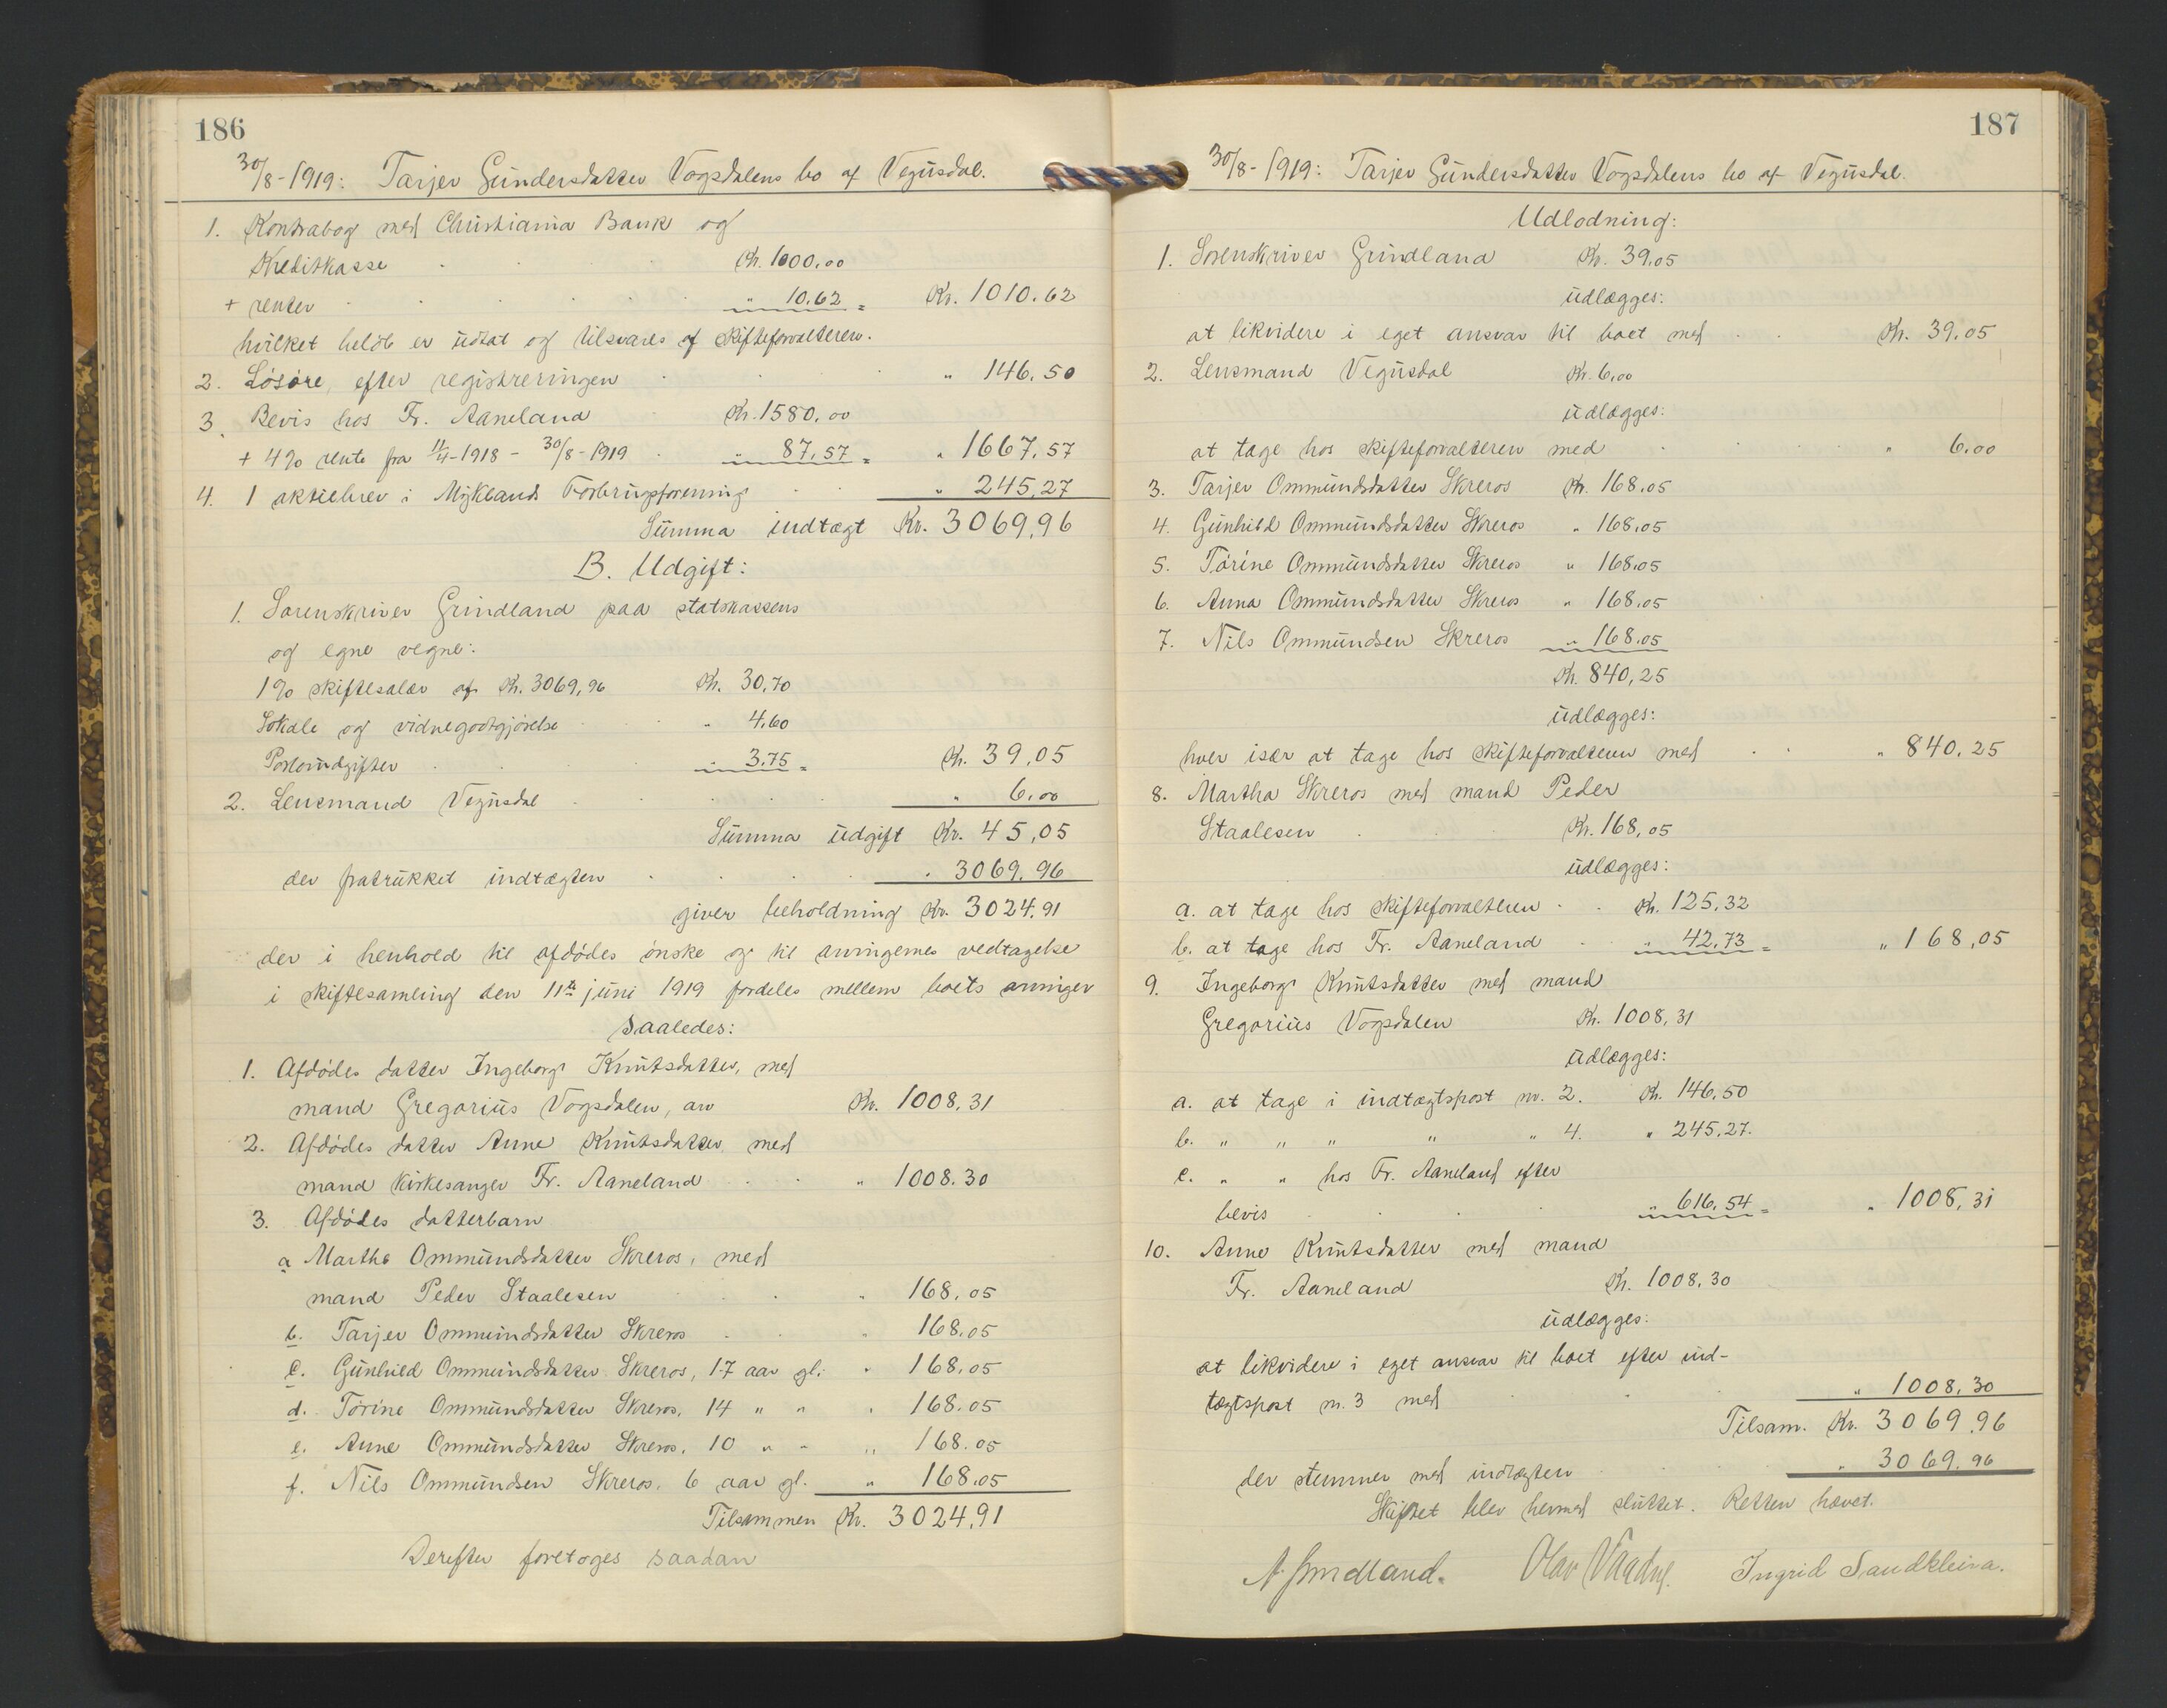 186
30/8-1919: Tarjer Gundersdatter Vogsdalens bo af Vegusdal.
1. Kontrabog med Christiania Bank og
Kreditkasse Kr. 1000,00
+ renter " 10.62 = Kr. 1010.62
hvilket beløb er udtat og tilsvares af skifteforvalteren.
2. Løsøre, efter registreringen " 146.50
3. Bevis hos Fr. Aaneland Kr. 1580,00
+ 4% rente fra 11/4-1918 - 30/8-1919 " 87,57 = " 1667,57
4. 1 aktiebrev i Myklands Forbrugsforening " 245,27
Summa indtægt Kr. 3069,96
B. Udgift:
1. Sorenskriver Grindland paa statskassens
og egne vegne:
1% skiftesalær af Kr. 3069,96 Kr. 30,70
Lokale og vidnegodtgjørelse " 4.60
Portoudgifter " 3.75 = Kr. 39,05
2. Lensmand Vegusdal " 6.00
Summa udgift Kr. 45,05
der fratrukket indtægten " 3069.96
giver beholdning Kr. 3024,91
der i henhold til afdødes ønske og til arvingernes vedtagelse
i skiftesamling den 11te juni 1919 fordeles mellem boets arvinger
saaledes:
1. Afdødes datter Ingeborg Knutsdatter, med
mand Gregorius Vogsdalen, arv Kr. 1008,31
2. Afdødes datter Anne Knutsdatter med
mand kirkesanger Fr. Aaneland " 1008.30
3. Afdødes datterbarn
a Martha Ommundsdatter Skreros, med
mand Peder Staalesen " 168,05
b. Tarjer Ommundsdatter Skreros " 168.05
c. Gunhild Ommundsdatter Skreros, 17 aar gl. " 168.05
d. Torine Ommundsdatter Skreros, 14 " " " 168.05
e. Anne Ommundsdatter Skreros, 10 " " " 168.05
f. Nils Ommundsen Skreros, 6 aar gl. " 168.05
Tilsammen Kr. 3024,91
Derefter foretoges saadan
187
30/8-1919: Tarjer Gundersdatter Vogsdalens bo af Vegusdal.
Udlodning:
1. Sorenskriver Grindland Kr. 39.05
udlægges:
at likvidere i eget ansvar til boet med Kr. 39.05
2. Lensmand Vegusdal Kr. 6,00
udlægges:
at tage hos skifteforvalteren med " 6.00
3. Tarjer Ommundsdatter Skreros Kr. 168.05
4. Gunhild Ommundsdatter Skreros " 168.05
5. Torine Ommundsdatter Skreros " 168.05
6. Anna Ommundsdatter Skreros " 168.05
7. Nils Ommundsen Skreros " 168.05
Kr. 840,25
udlægges:
hver især at tage hos skifteforvalteren med " 840.25
8. Martha Skreros med mand Peder
Staalesen Kr. 168,05
udlægges:
a. at tage hos skifteforvalteren Kr. 125,32
b. at tage hos Fr. Aaneland " 42,73 = " 168,05
9. Ingeborg Knutsdatter med mand
Gregorius Vogsdalen Kr. 1008,31
udlægges:
a. at tage i indtægtspost nr. 2. Kr. 146,50
b. " " " " " 4. " 245,27.
c. " " hos Fr. Aaneland efter
bevis " 616,54 = " 1008,31
10. Anne Knutsdatter med mand
Fr. Aaneland Kr. 1008.30
udlægges:
at likvidere i eget ansvar til boet efter ind-
tægtspost nr. 3 med " 1008,30
Tilsam. Kr. 3069,96
der stemmer med indtægten " 3069.96
Skiftet blev hermed sluttet. Retten hævet.
N Grindland. Olav Ingrid Sandkleiva.